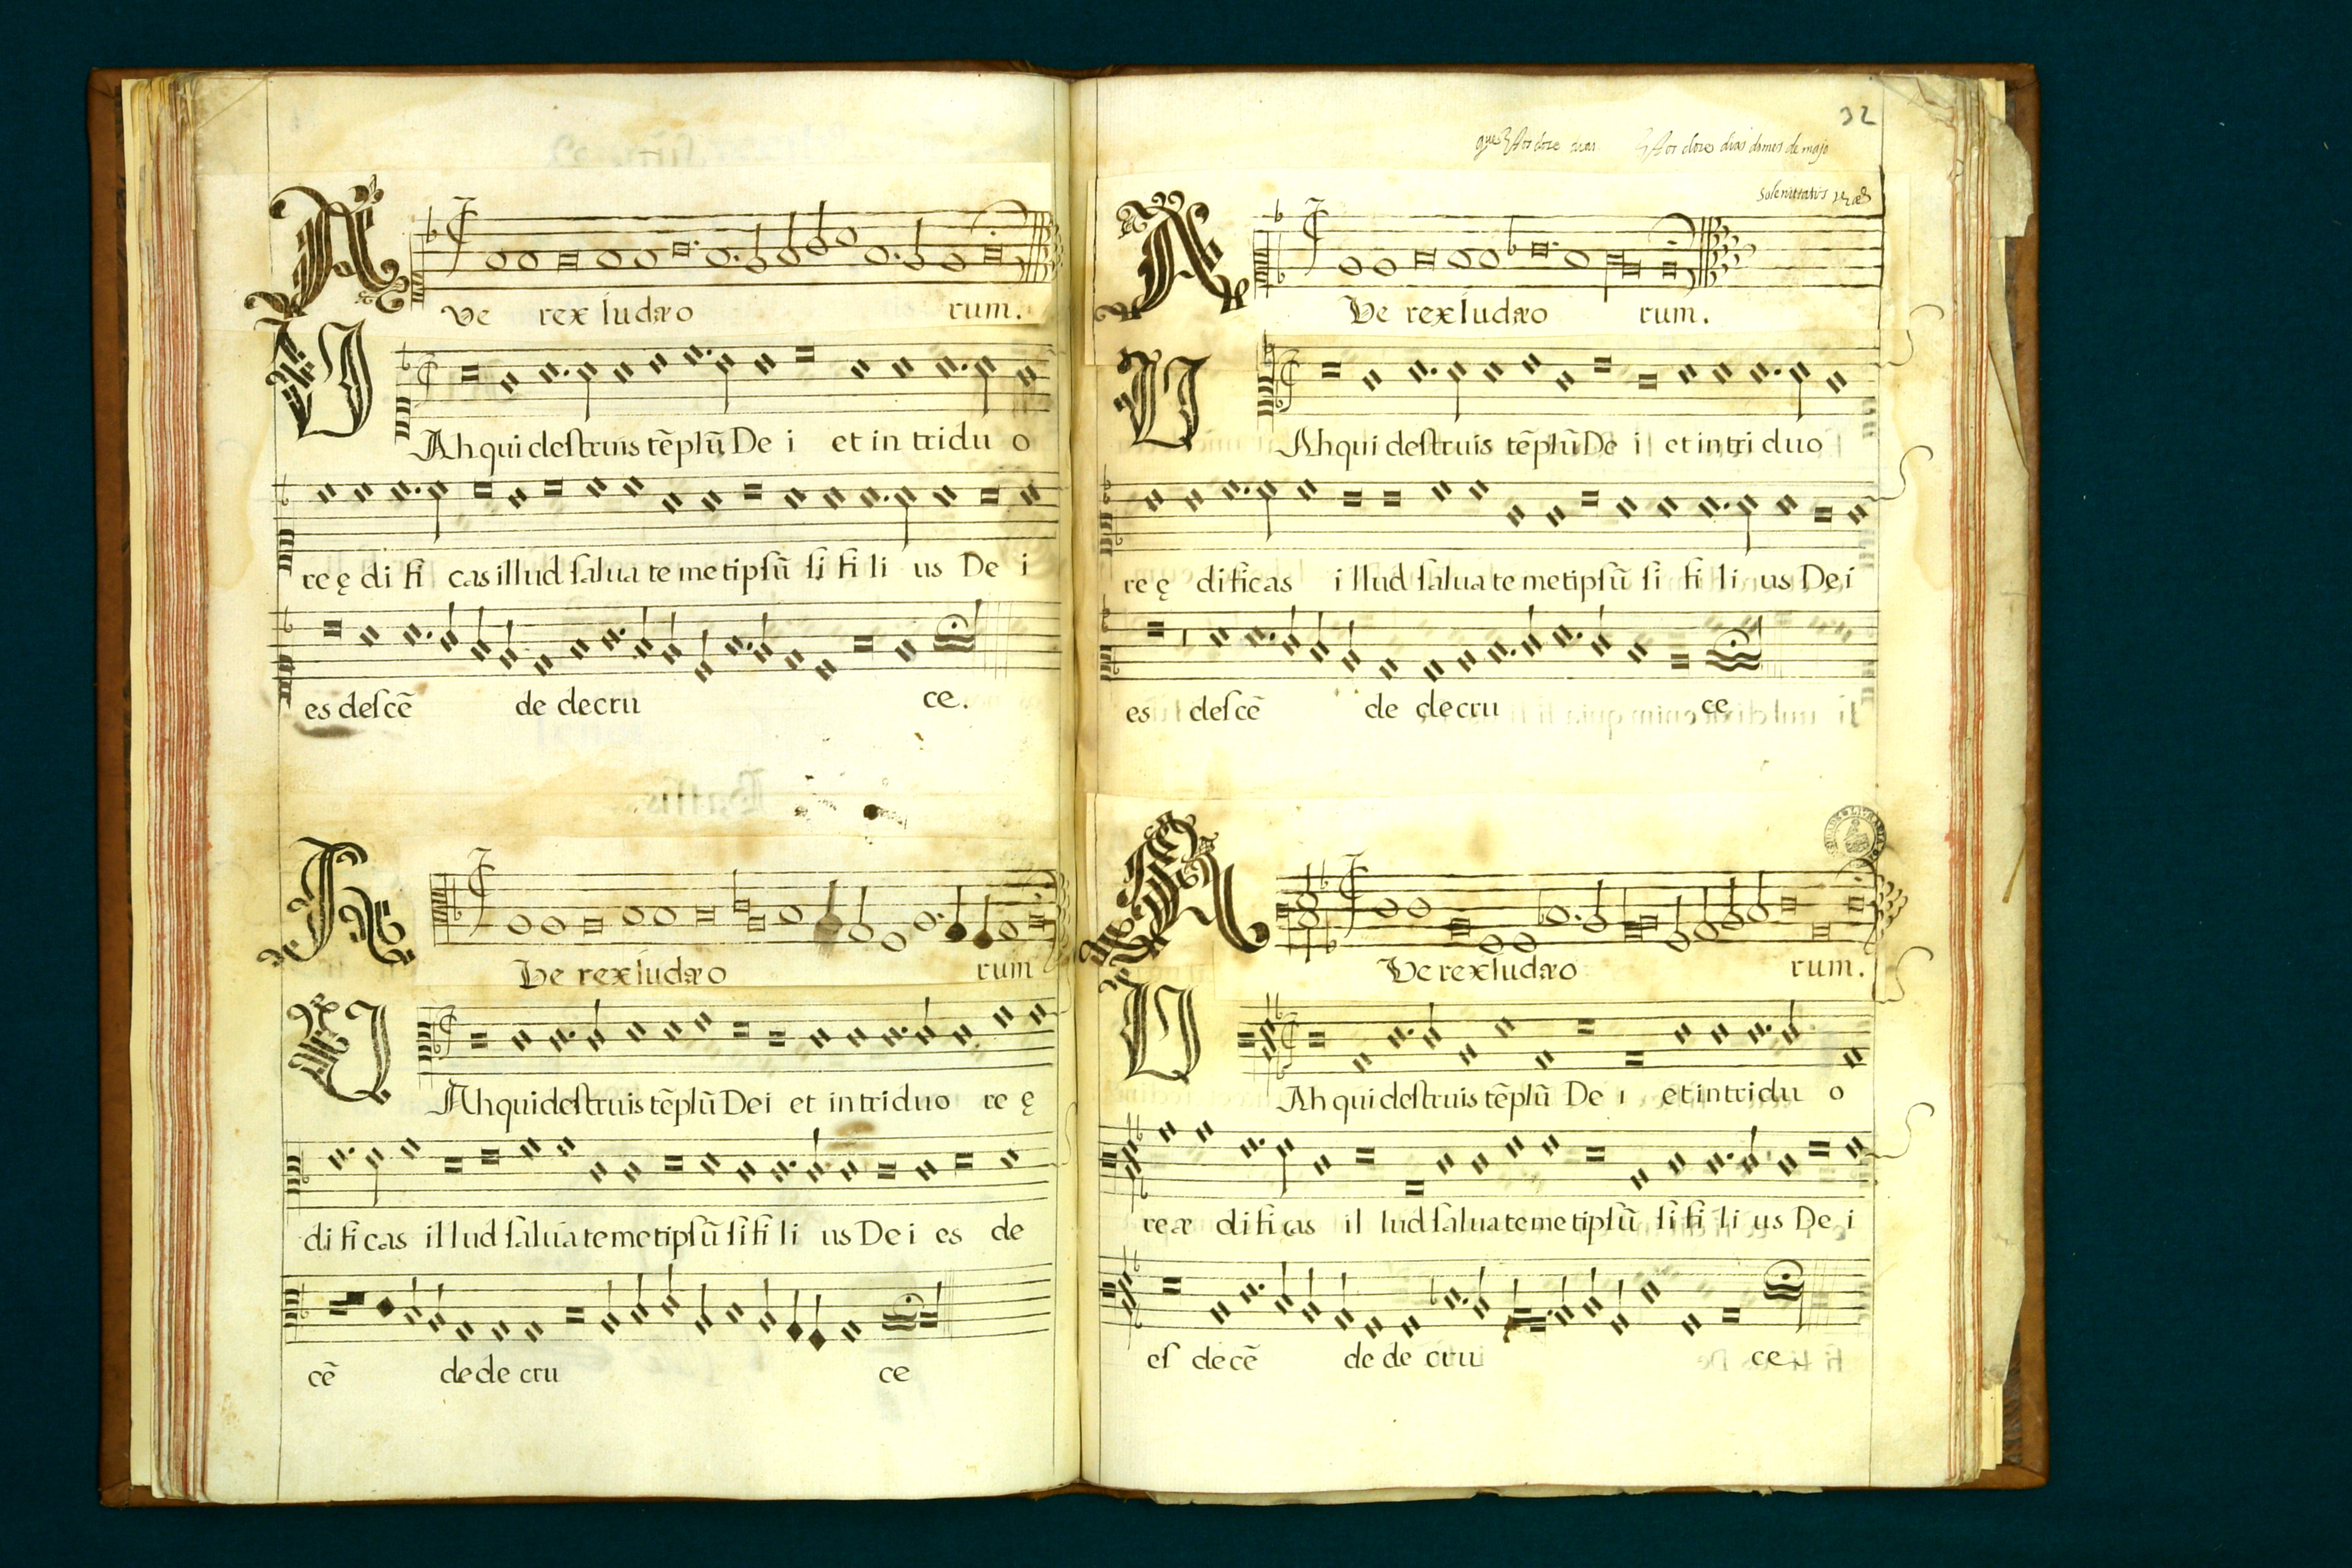 AVe rex Iudæo rum.
VAh qui destruis tẽplũ De i et in tridu o
re ę di fi cas illud salua te metipsũ si fi li us De i
es descẽ de de cru ce.
AVe rex Iudæo rum
VAh qui destruis tẽplũ Dei et in triduo re ę
di fi cas illud salua te metipsũ si fi li us De i es de
cẽ de de cru ce
32
estos doze dias do mes de majo
solenitatis
AVe rex Iudæo rum.
VAh qui destruis tẽplũ De i et in tri duo
re ę dificas i llud salua te metipsũ si fi li us De i
es descẽ de de cru ce
AVe rex Iudæo rum.
VAh qui destruis tẽplũ De i et in tridu o
re æ di fi cas il lud salua te metipsũ si fi li us De i
es decẽ de de cru ce